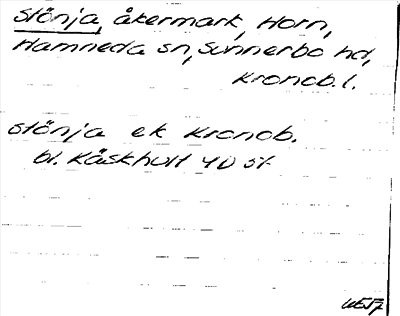 stönja, åkermark, Horn,
Hamneda sn, Sunnerbo hd,
Kronob. l.
stönja ek Kronob.
bl. Kåskhult 4D